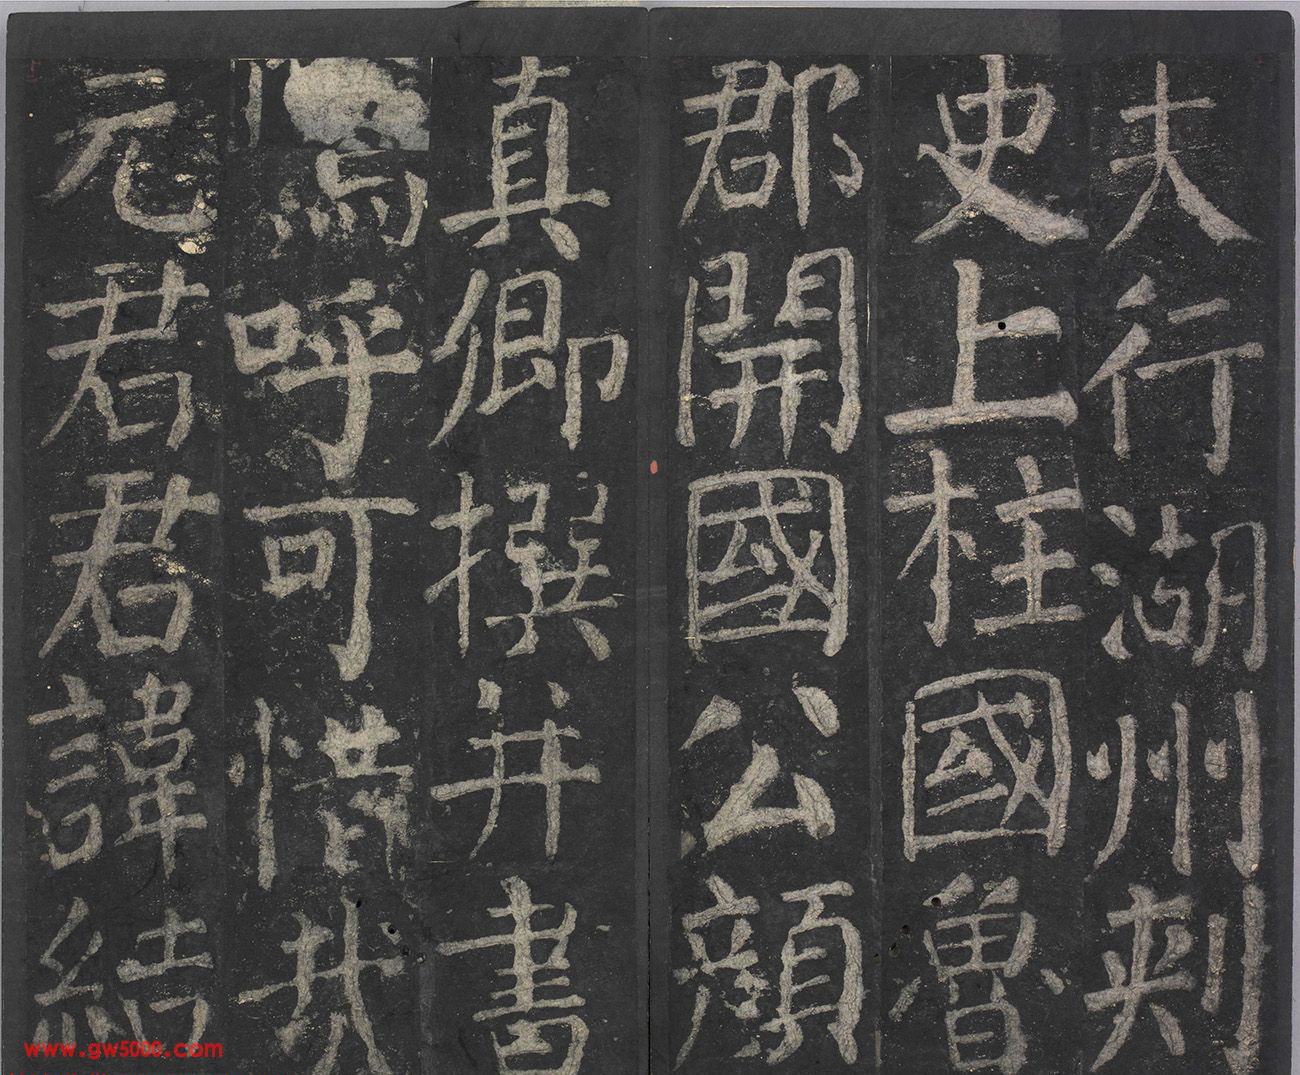 夫行湖州刺
史上柱國魯
郡開國公顏
真卿撰并書
嗚呼可惜哉
元君君諱結
www.gw5000.com